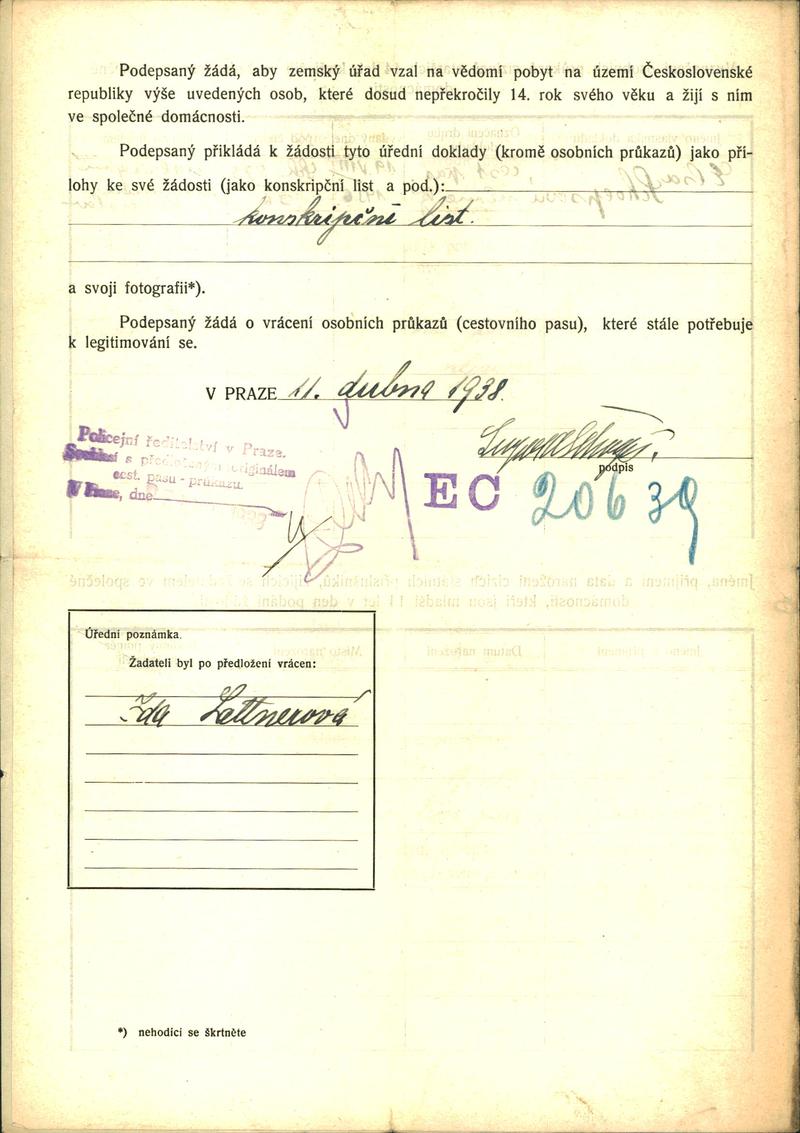 Podepsaný žádá, aby zemský úřad vzal na vědomí pobyt na území Československé
republiky výše uvedených osob, které dosud nepřekročily 14. rok svého věku a žijí s ním
ve společné domácnosti.
Podepsaný přikládá k žádosti tyto úřední doklady (kromě osobních průkazů) jako pří-
lohy ke své žádosti (jako konskripční list a pod.):
konskripční list.
a svoji fotografii*).
Podepsaný žádá o vrácení osobních průkazů (cestovního pasu), které stále potřebuje
k legitimování se.
V PRAZE 11. dubna 1938.
Policejní ředitelství v Praze.
Souhlasí s předloženým originálem
cest. pasu - průkazu.
V Praze, dne
podpis
EC 20639
Úřední poznámka.
Žadateli byl po předložení vrácen:
Ida Lettnerová
*) nehodící se škrtněte